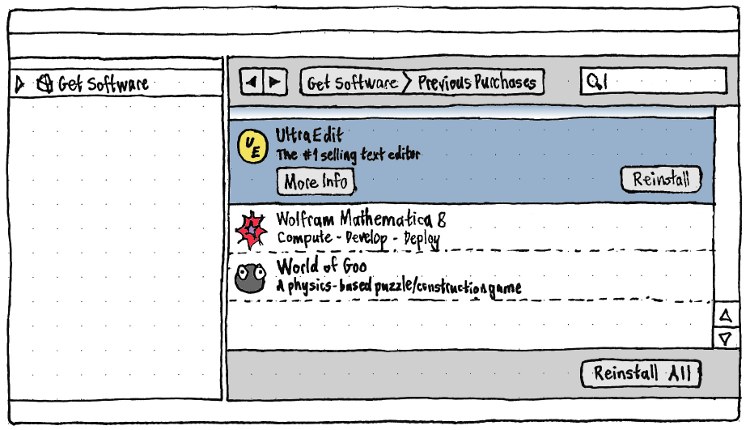 Get Software
Get Software Previous Purchases
UE
UltraEdit
The #1 selling text editor
More Info
Reinstall
Wolfram Mathematica 8
Compute - Develop - Deploy
World of Goo
A physics-based puzzle/construction game
Reinstall All